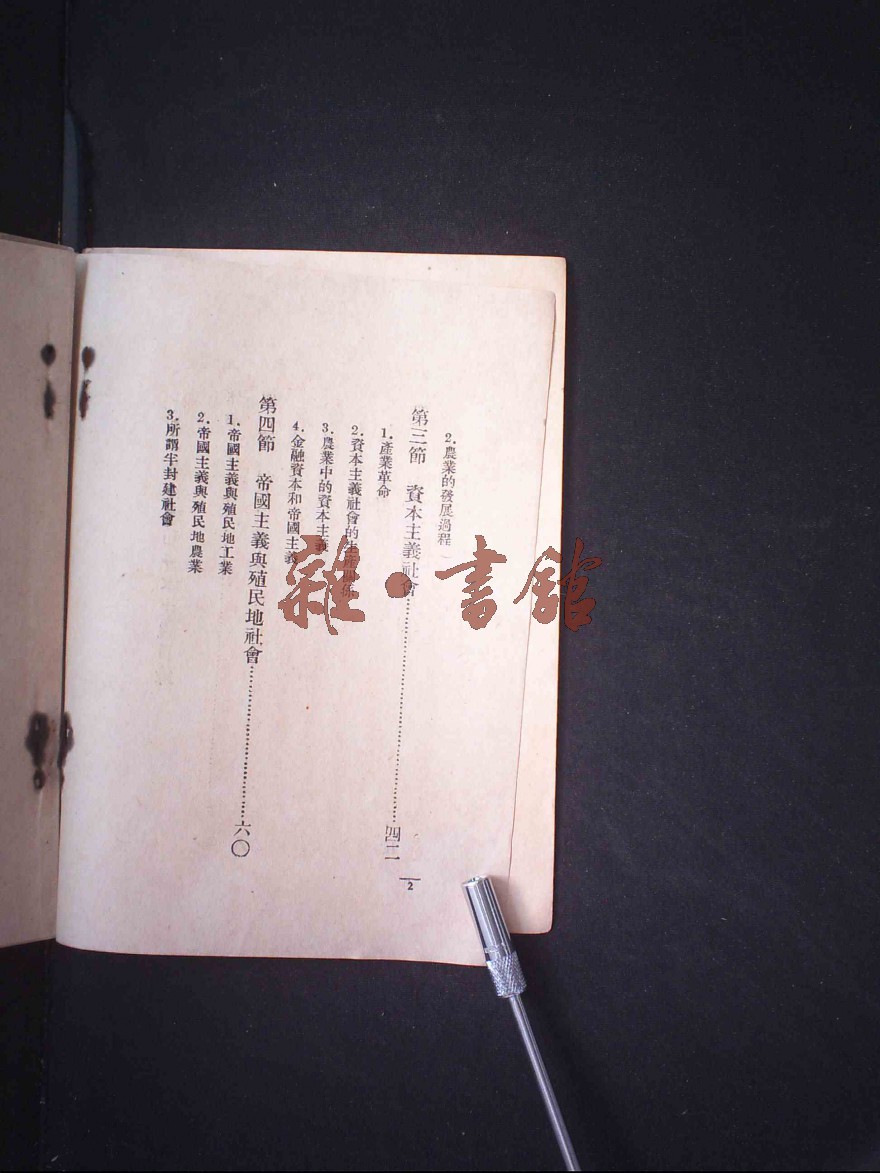 2.農業的發展過程
第三節 資本主義社會……四二
1.產業革命
2.資本主義社會的生產關係
3.農業中的資本主義
4.金融資本和帝國主義
第四節 帝國主義與殖民地社會……六〇
1.帝國主義與殖民地工業
2.帝國主義與殖民地農業
3.所謂半封建社會
2
雜·書館